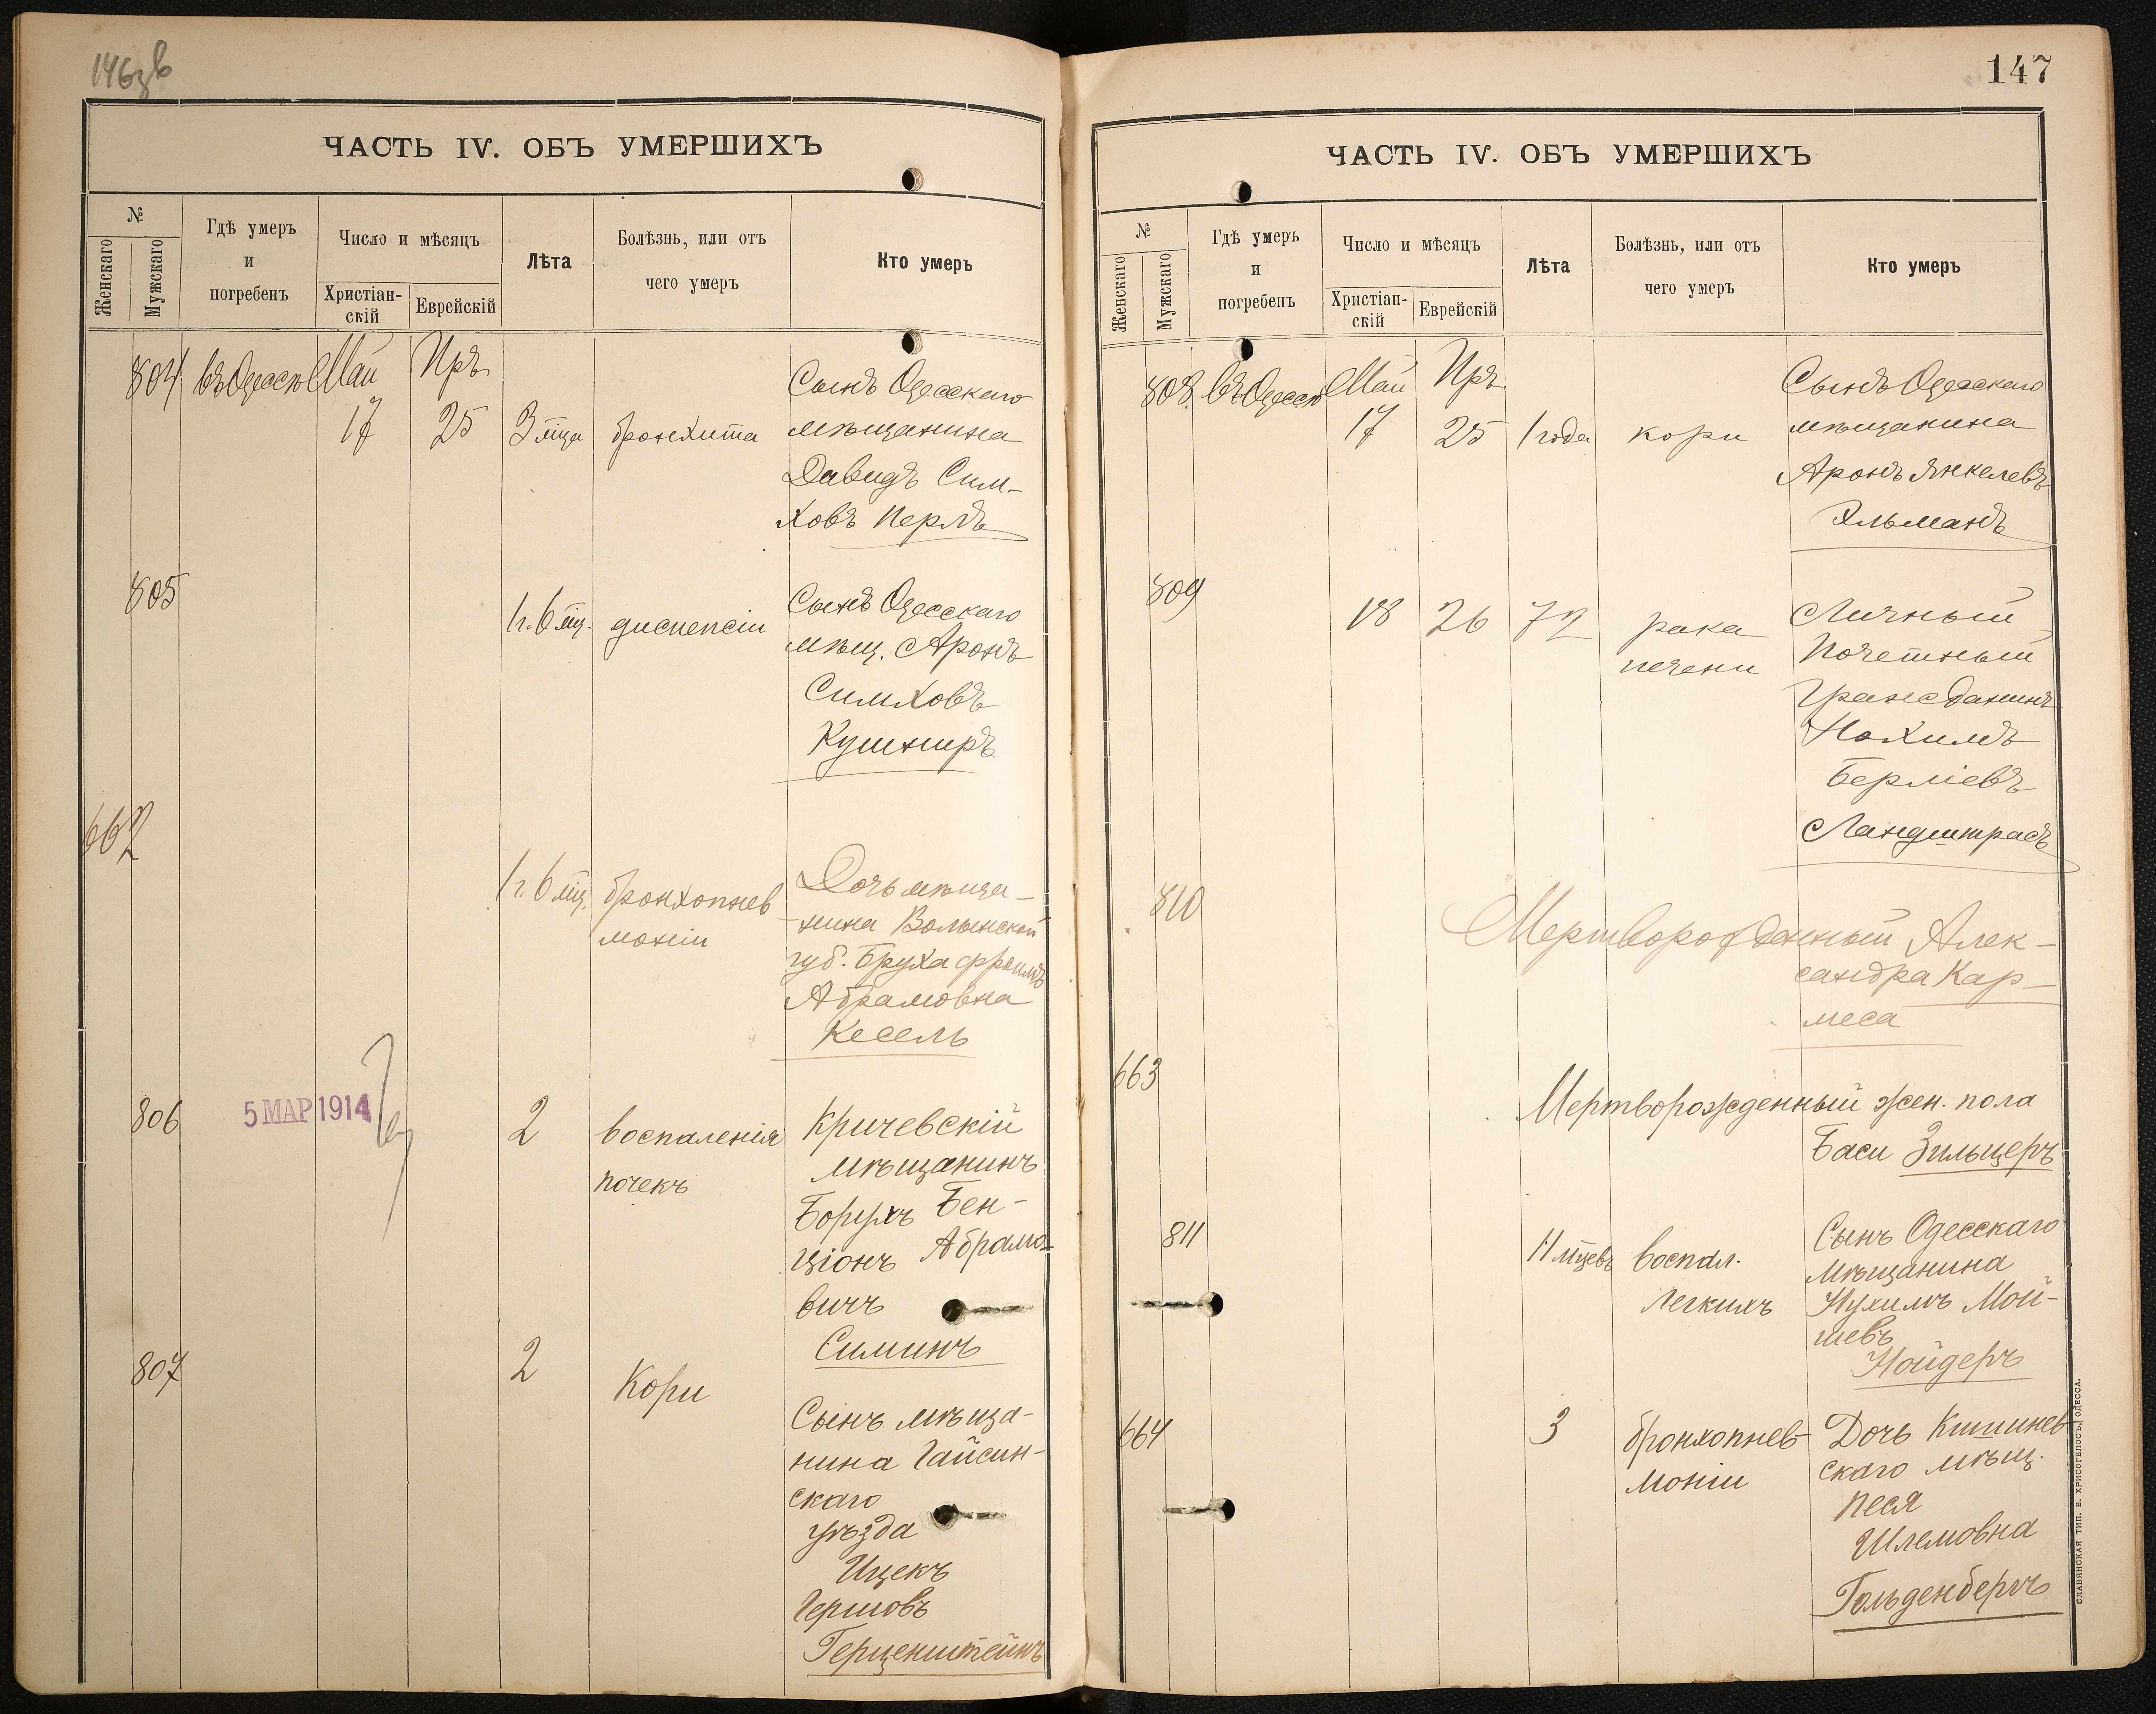 146 об
ЧАСТЬ IV. ОБЪ УМЕРШИХЪ
№
Женскаго
Мужскаго
Гдѣ умеръ
и
погребенъ
Число и мѣсяцъ
Христіан-
скій
Еврейскій
Лѣта
Болѣзнь, или отъ
чего умеръ
Кто умеръ
804 въ Одессѣ Май Иръ
17 25 3 мца бронхита
Сынъ Одесскаго
мѣщанина
Давидъ Сим-
ховъ Перлъ
805
1 г. 6 мц. диспепсіи
Сынъ Одесскаго
мѣщ. Аронъ
Симховъ
Кушниръ
662
1 г. 6 мц. бронхопнев
моніи
Дочь мѣща-
нина Волынской
губ. Бруха Фроимъ
Абрамовна
Кесель
806
5 МАР 1914
2 воспаленія
почекъ
Кричевскій
мѣщанинъ
Борухъ Бен-
ціонъ Абрамо-
вичъ
Симинъ
807
2 Кори
Сынъ мѣща-
нина Гайсин-
скаго
уѣзда
Ицекъ
Гершовъ
Герценштейнъ
147
ЧАСТЬ IV. ОБЪ УМЕРШИХЪ
№
Женскаго
Мужскаго
Гдѣ умеръ
и
погребенъ
Число и мѣсяцъ
Христіан-
скій
Еврейскій
Лѣта
Болѣзнь, или отъ
чего умеръ
Кто умеръ
808 въ Одессѣ Май Иръ
17 25 1 года кори
Сынъ Одесскаго
мѣщанина
Аронъ Янкелевъ
Эльманъ
809
18 26 72 рака
печени
Личный
Почетный
Гражданинъ
Нахимъ
Берліевъ
Ландштрасъ
810
Мертворожденный Алек-
сандра Кар-
меса
663
Мертворожденный жен. пола
Баси Зильцеръ
811
11 мцевъ воспал.
легкихъ
Сынъ Одесскаго
мѣщанина
Нухимъ Мой-
шевъ
Нойдеръ
664
3 бронхопнев-
моніи
Дочь Кишинев
скаго мѣщ.
Песя
Шлемовна
Гольденбергъ
СЛАВЯНСКАЯ ТИП. Е. ХРИСОГЕЛОСЪ, ОДЕССА.